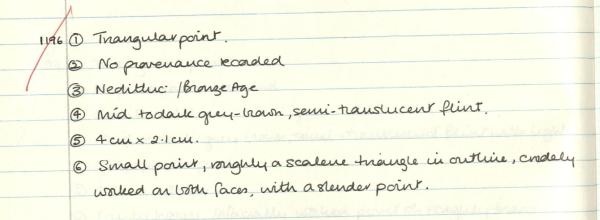 1196 ① Triangular point.
② No provenance recorded
③ Neolithic / Bronze Age
④ Mid to dark grey-brown, semi-translucent flint.
⑤ 4cm x 2.1cm.
⑥ Small point, roughly a scalene triangle in outline, crudely
worked on both faces, with a slender point.